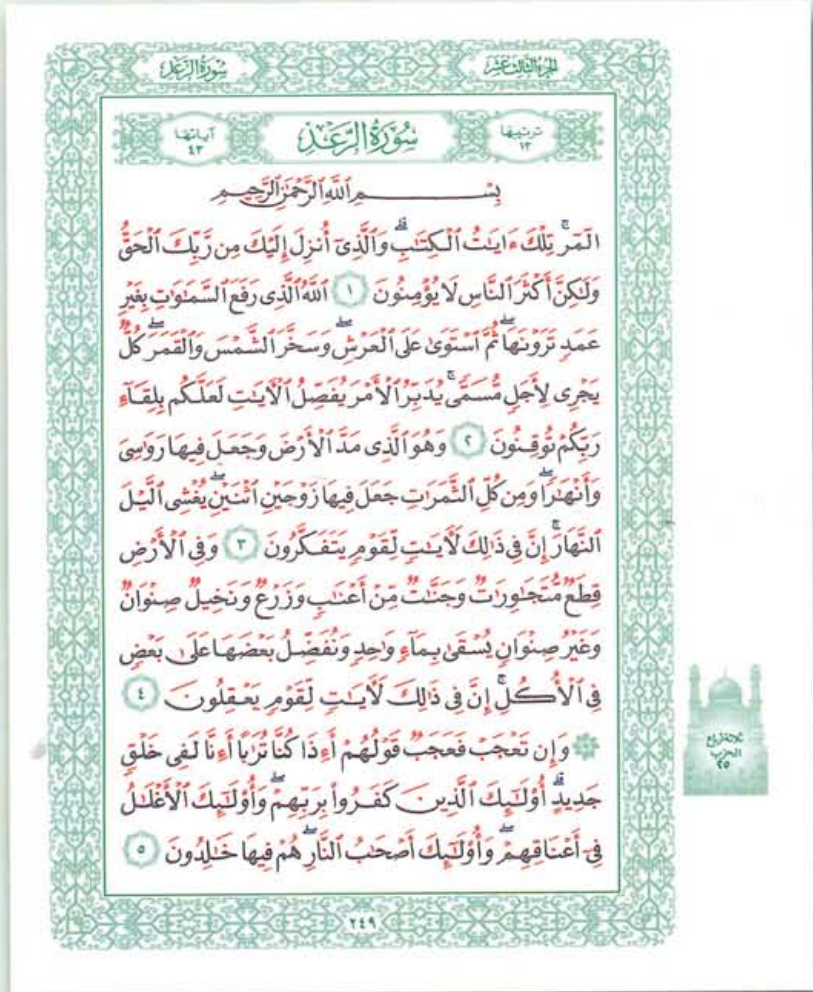 الجزء الثالث عشر
سُورَةُ الرَّعْدِ
ترتيبها
١٣
سُورَةُ الرَّعْدِ
آياتها
٤٣
بِسْمِ ٱللَّهِ ٱلرَّحْمَٰنِ ٱلرَّحِيمِ
الٓمٓرۚ تِلْكَ ءَايَٰتُ ٱلْكِتَٰبِۗ وَٱلَّذِىٓ أُنزِلَ إِلَيْكَ مِن رَّبِّكَ ٱلْحَقُّ
وَلَٰكِنَّ أَكْثَرَ ٱلنَّاسِ لَا يُؤْمِنُونَ ١ ٱللَّهُ ٱلَّذِى رَفَعَ ٱلسَّمَٰوَٰتِ بِغَيْرِ
عَمَدٍ تَرَوْنَهَاۖ ثُمَّ ٱسْتَوَىٰ عَلَى ٱلْعَرْشِۖ وَسَخَّرَ ٱلشَّمْسَ وَٱلْقَمَرَۖ كُلٌّ
يَجْرِى لِأَجَلٍ مُّسَمًّىۚ يُدَبِّرُ ٱلْأَمْرَ يُفَصِّلُ ٱلْءَايَٰتِ لَعَلَّكُم بِلِقَآءِ
رَبِّكُمْ تُوقِنُونَ ٢ وَهُوَ ٱلَّذِى مَدَّ ٱلْأَرْضَ وَجَعَلَ فِيهَا رَوَٰسِىَ
وَأَنْهَٰرًاۖ وَمِن كُلِّ ٱلثَّمَرَٰتِ جَعَلَ فِيهَا زَوْجَيْنِ ٱثْنَيْنِۖ يُغْشِى ٱلَّيْلَ
ٱلنَّهَارَۚ إِنَّ فِى ذَٰلِكَ لَءَايَٰتٍ لِّقَوْمٍ يَتَفَكَّرُونَ ٣ وَفِى ٱلْأَرْضِ
قِطَعٌ مُّتَجَٰوِرَٰتٌ وَجَنَّٰتٌ مِّنْ أَعْنَٰبٍ وَزَرْعٌ وَنَخِيلٌ صِنْوَانٌ
وَغَيْرُ صِنْوَانٍ يُسْقَىٰ بِمَآءٍ وَٰحِدٍ وَنُفَضِّلُ بَعْضَهَا عَلَىٰ بَعْضٍ
فِى ٱلْأُكُلِۚ إِنَّ فِى ذَٰلِكَ لَءَايَٰتٍ لِّقَوْمٍ يَعْقِلُونَ ٤
۞ وَإِن تَعْجَبْ فَعَجَبٌ قَوْلُهُمْ أَءِذَا كُنَّا تُرَٰبًا أَءِنَّا لَفِى خَلْقٍ
جَدِيدٍۗ أُو۟لَٰٓئِكَ ٱلَّذِينَ كَفَرُوا۟ بِرَبِّهِمْۖ وَأُو۟لَٰٓئِكَ ٱلْأَغْلَٰلُ
فِىٓ أَعْنَاقِهِمْۖ وَأُو۟لَٰٓئِكَ أَصْحَٰبُ ٱلنَّارِۖ هُمْ فِيهَا خَٰلِدُونَ ٥
ثلاثة أرباع
الحزب
٢٥
٢٤٩